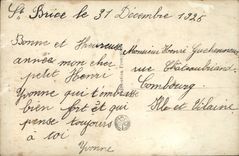 St Brice le 31 Décembre 1926
Bonne et Heureuse
année mon cher
petit Henri
Yvonne qui t'embrasse
bien fort et qui
pense toujours
à toi
Yvonne
Monsieur Henri
rue Chateaubriand
Combourg
Ille et Vilaine